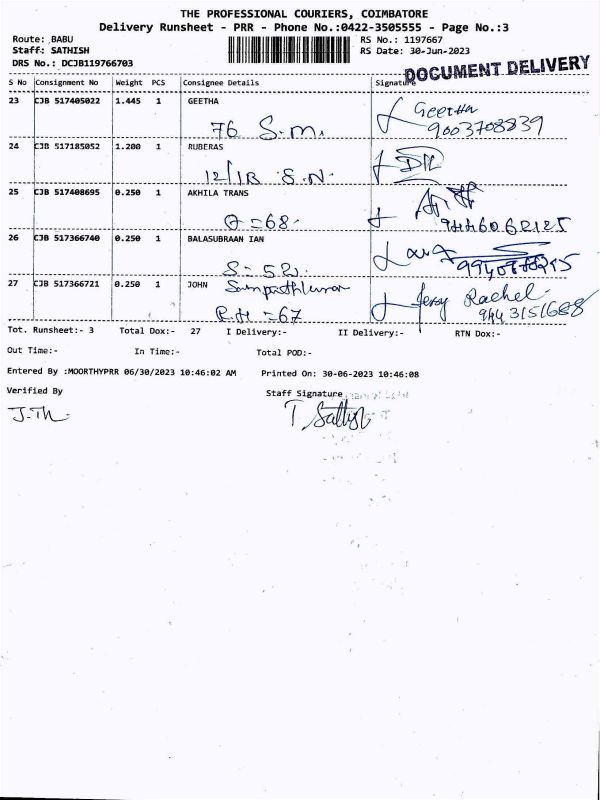 THE PROFESSIONAL COURIERS, COIMBATORE
Delivery Runsheet - PRR - Phone No.:0422-3505555 - Page No.:3
Route: BABU RS No.: 1197667
Staff: SATHISH RS Date: 30-Jun-2023
DRS No.: DCJB119766703
DOCUMENT DELIVERY
S No Consignment No Weight PCS Consignee Details Signature
23 CJB 517405022 1.445 1 GEETHA Geetha
76 S.M. 9003708839
24 CJB 517185052 1.200 1 RUBERAS
12/1B S.N.
25 CJB 517408695 0.250 1 AKHILA TRANS
=68. 9446062125
26 CJB 517366740 0.250 1 BALASUBRAAN IAN
S=52.
27 CJB 517366721 0.250 1 JOHN Jersy Rachel
R.H =67 9443151688
Tot. Runsheet:- 3 Total Dox:- 27 I Delivery:- II Delivery:- RTN Dox:-
Out Time:- In Time:- Total POD:-
Entered By :MOORTHYPRR 06/30/2023 10:46:02 AM Printed On: 30-06-2023 10:46:08
Verified By Staff Signature